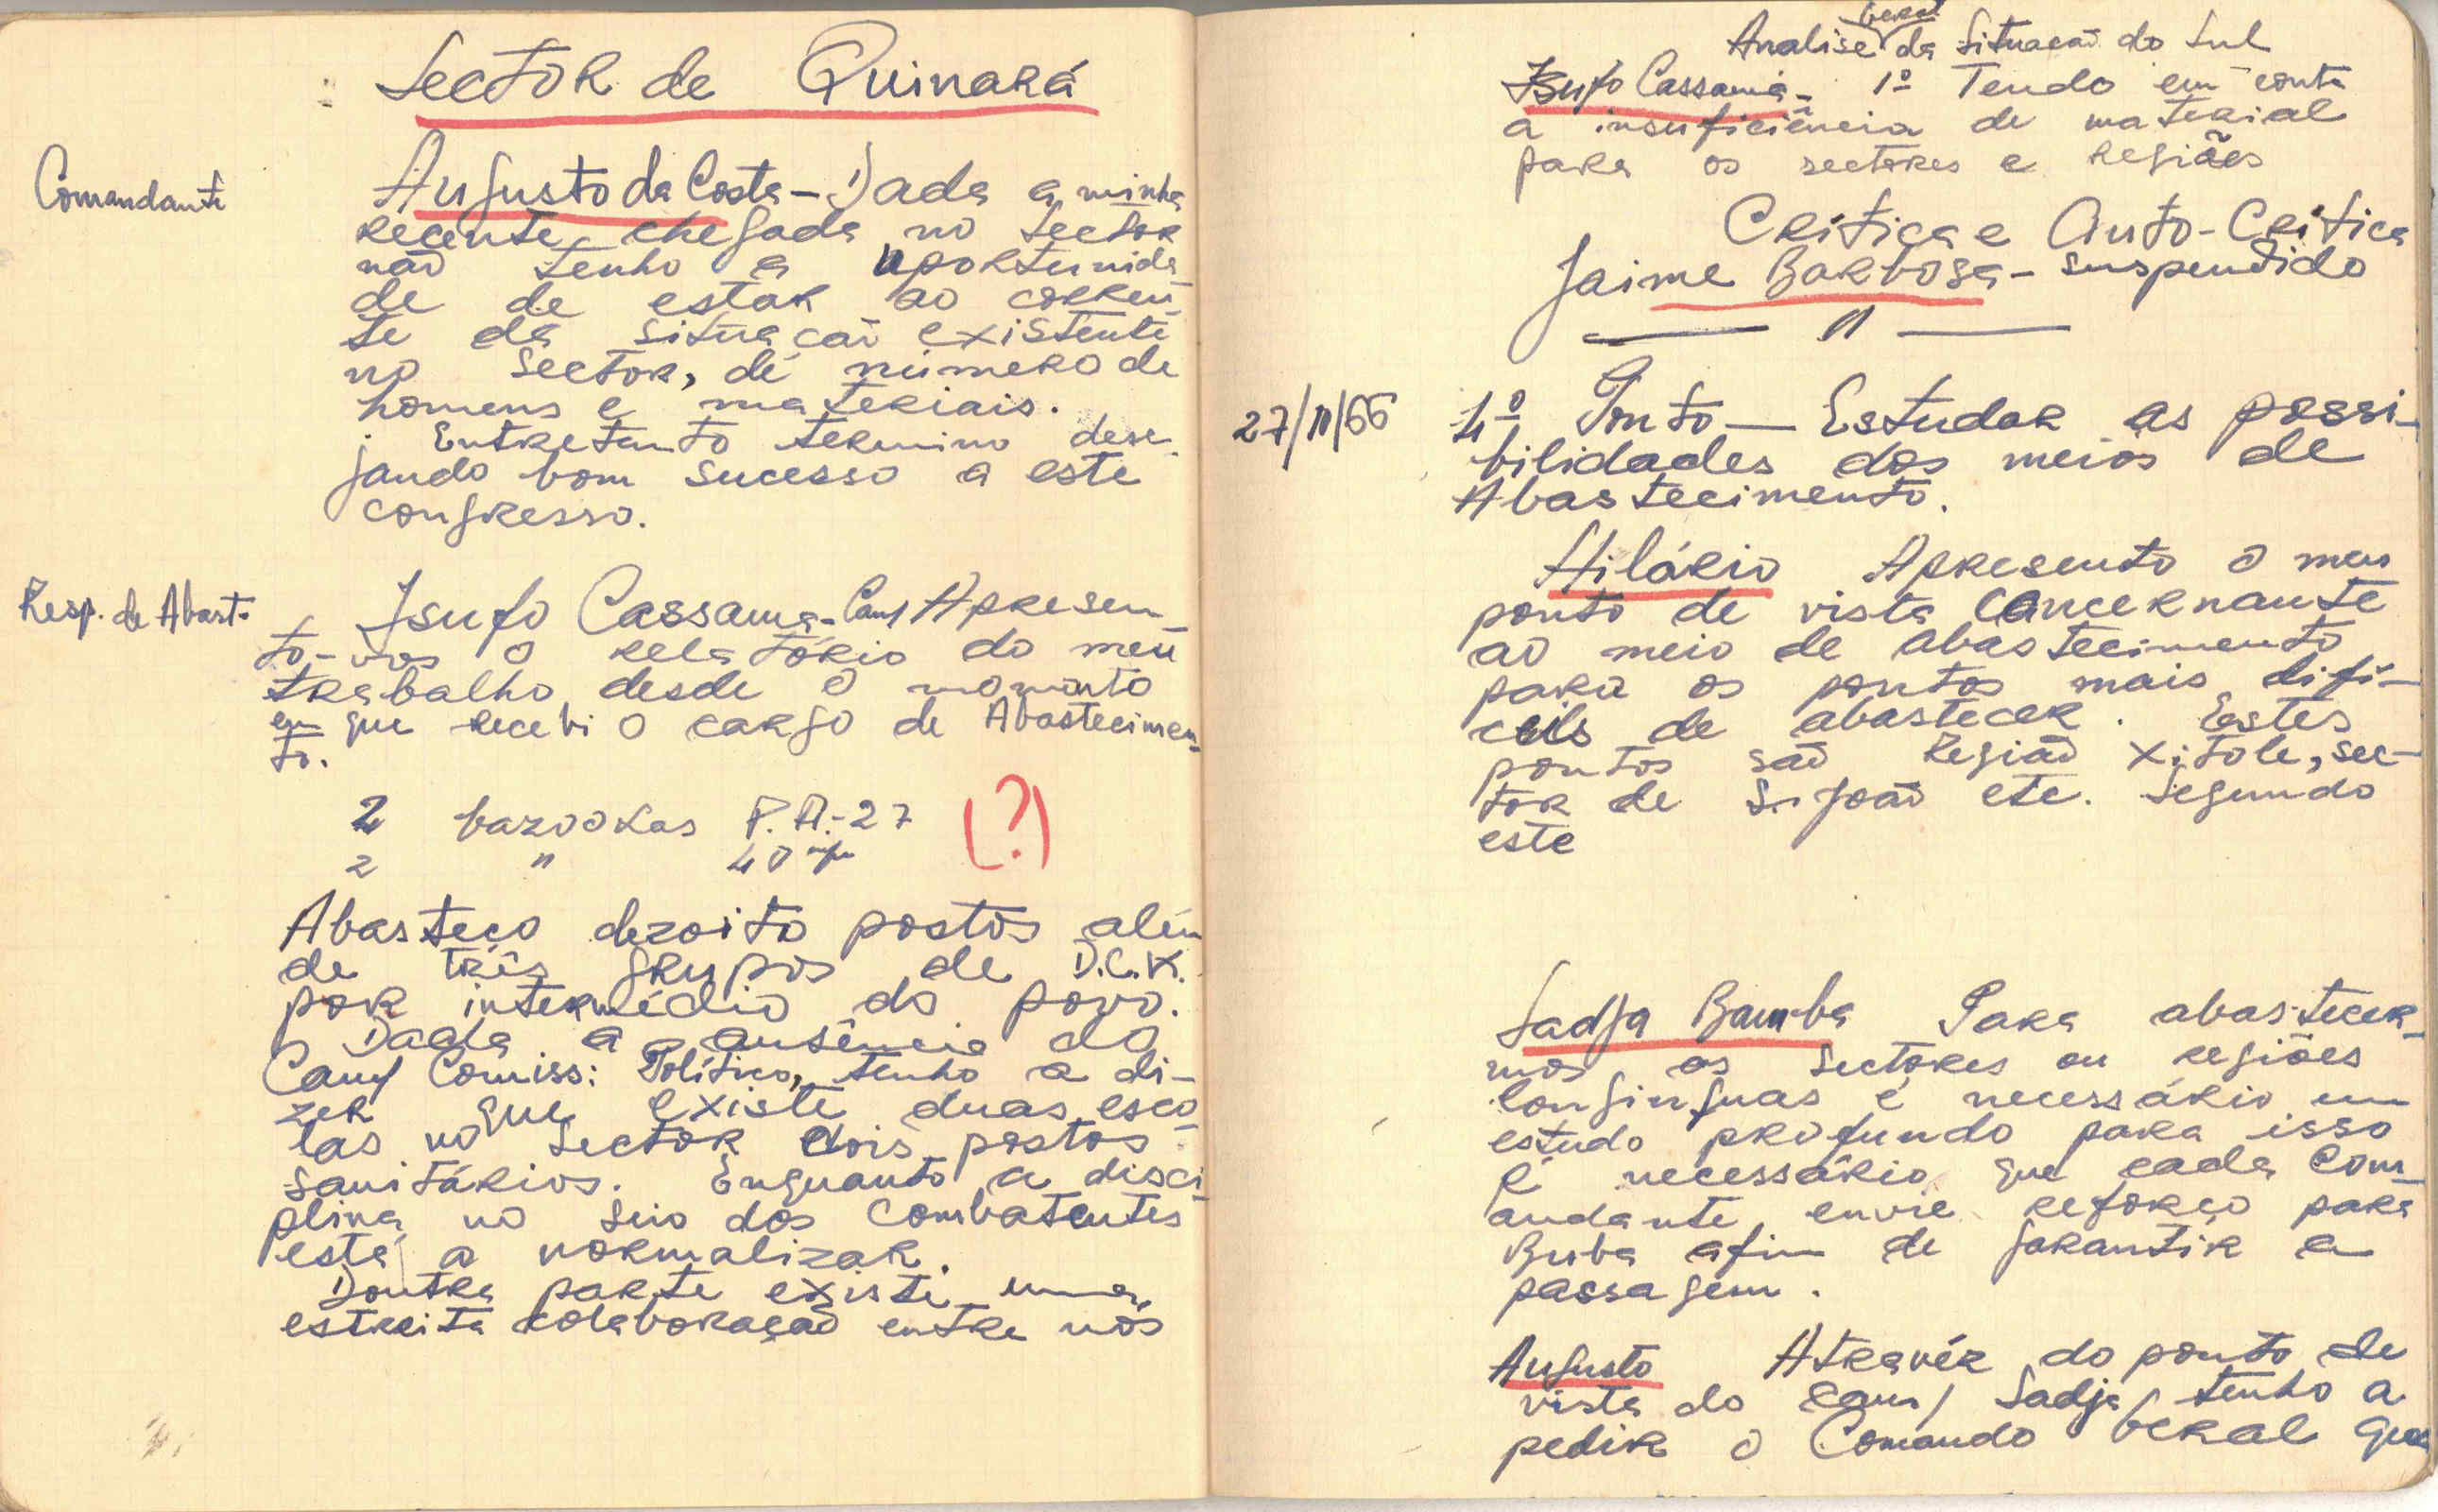 Sector de Quinará
Comandante
Augusto da Costa - Dada a minha
recente chegada no Sector
não tenho a oportunida
de de estar ao corren-
te da situação existente
no Sector, de número de
homens e materiais.
Entretanto termino dese-
jando bom sucesso a este
congresso.
Resp. de Abast.
Isufo Cassama - Cam/ Apresen-
to-vos o relatório do meu
trabalho desde o momento
em que recebi o cargo de Abastecimen-
to.
2 bazookas P.A.-27 (?)
2 " 40 m/m
Abasteço dezoito postos além
de três grupos de D.C.K.
por intermédio do povo.
Dada a ausência do
Cam/ Comiss: Político, tenho a di-
zer que existe duas esco-
las no Sector dois postos
sanitários. Enquanto a disci-
plina no seio dos combatentes
está a normalizar.
Doutra parte existe uma
estreita colaboração entre nós
Analise geral da Situação do Sul
Isufo Cassamá - 1º Tendo em conta
a insuficiência de material
para os sectores e regiões
Crítica e Auto-Crítica
Jaime Barbosa - suspendido
— " —
27/11/66
1º Ponto — Estudar as possi-
bilidades dos meios de
Abastecimento.
Hilário Apresento o meu
ponto de vista concernante
ao meio de abastecimento
para os pontos mais difí-
ceis de abastecer. Estes
pontos são Região Xitole, sec-
tor de S. João etc. Segundo
este
Sadja Bamba Para abastecer-
mos os Sectores ou regiões
longinguas é necessário um
estudo profundo para isso
é necessário que cada Com-
andante envie reforço para
Buba afim de garantir a
passagem.
Augusto Atravéz do ponto de
vista do Cam/ Sadja, tenho a
pedir o Comando Geral que